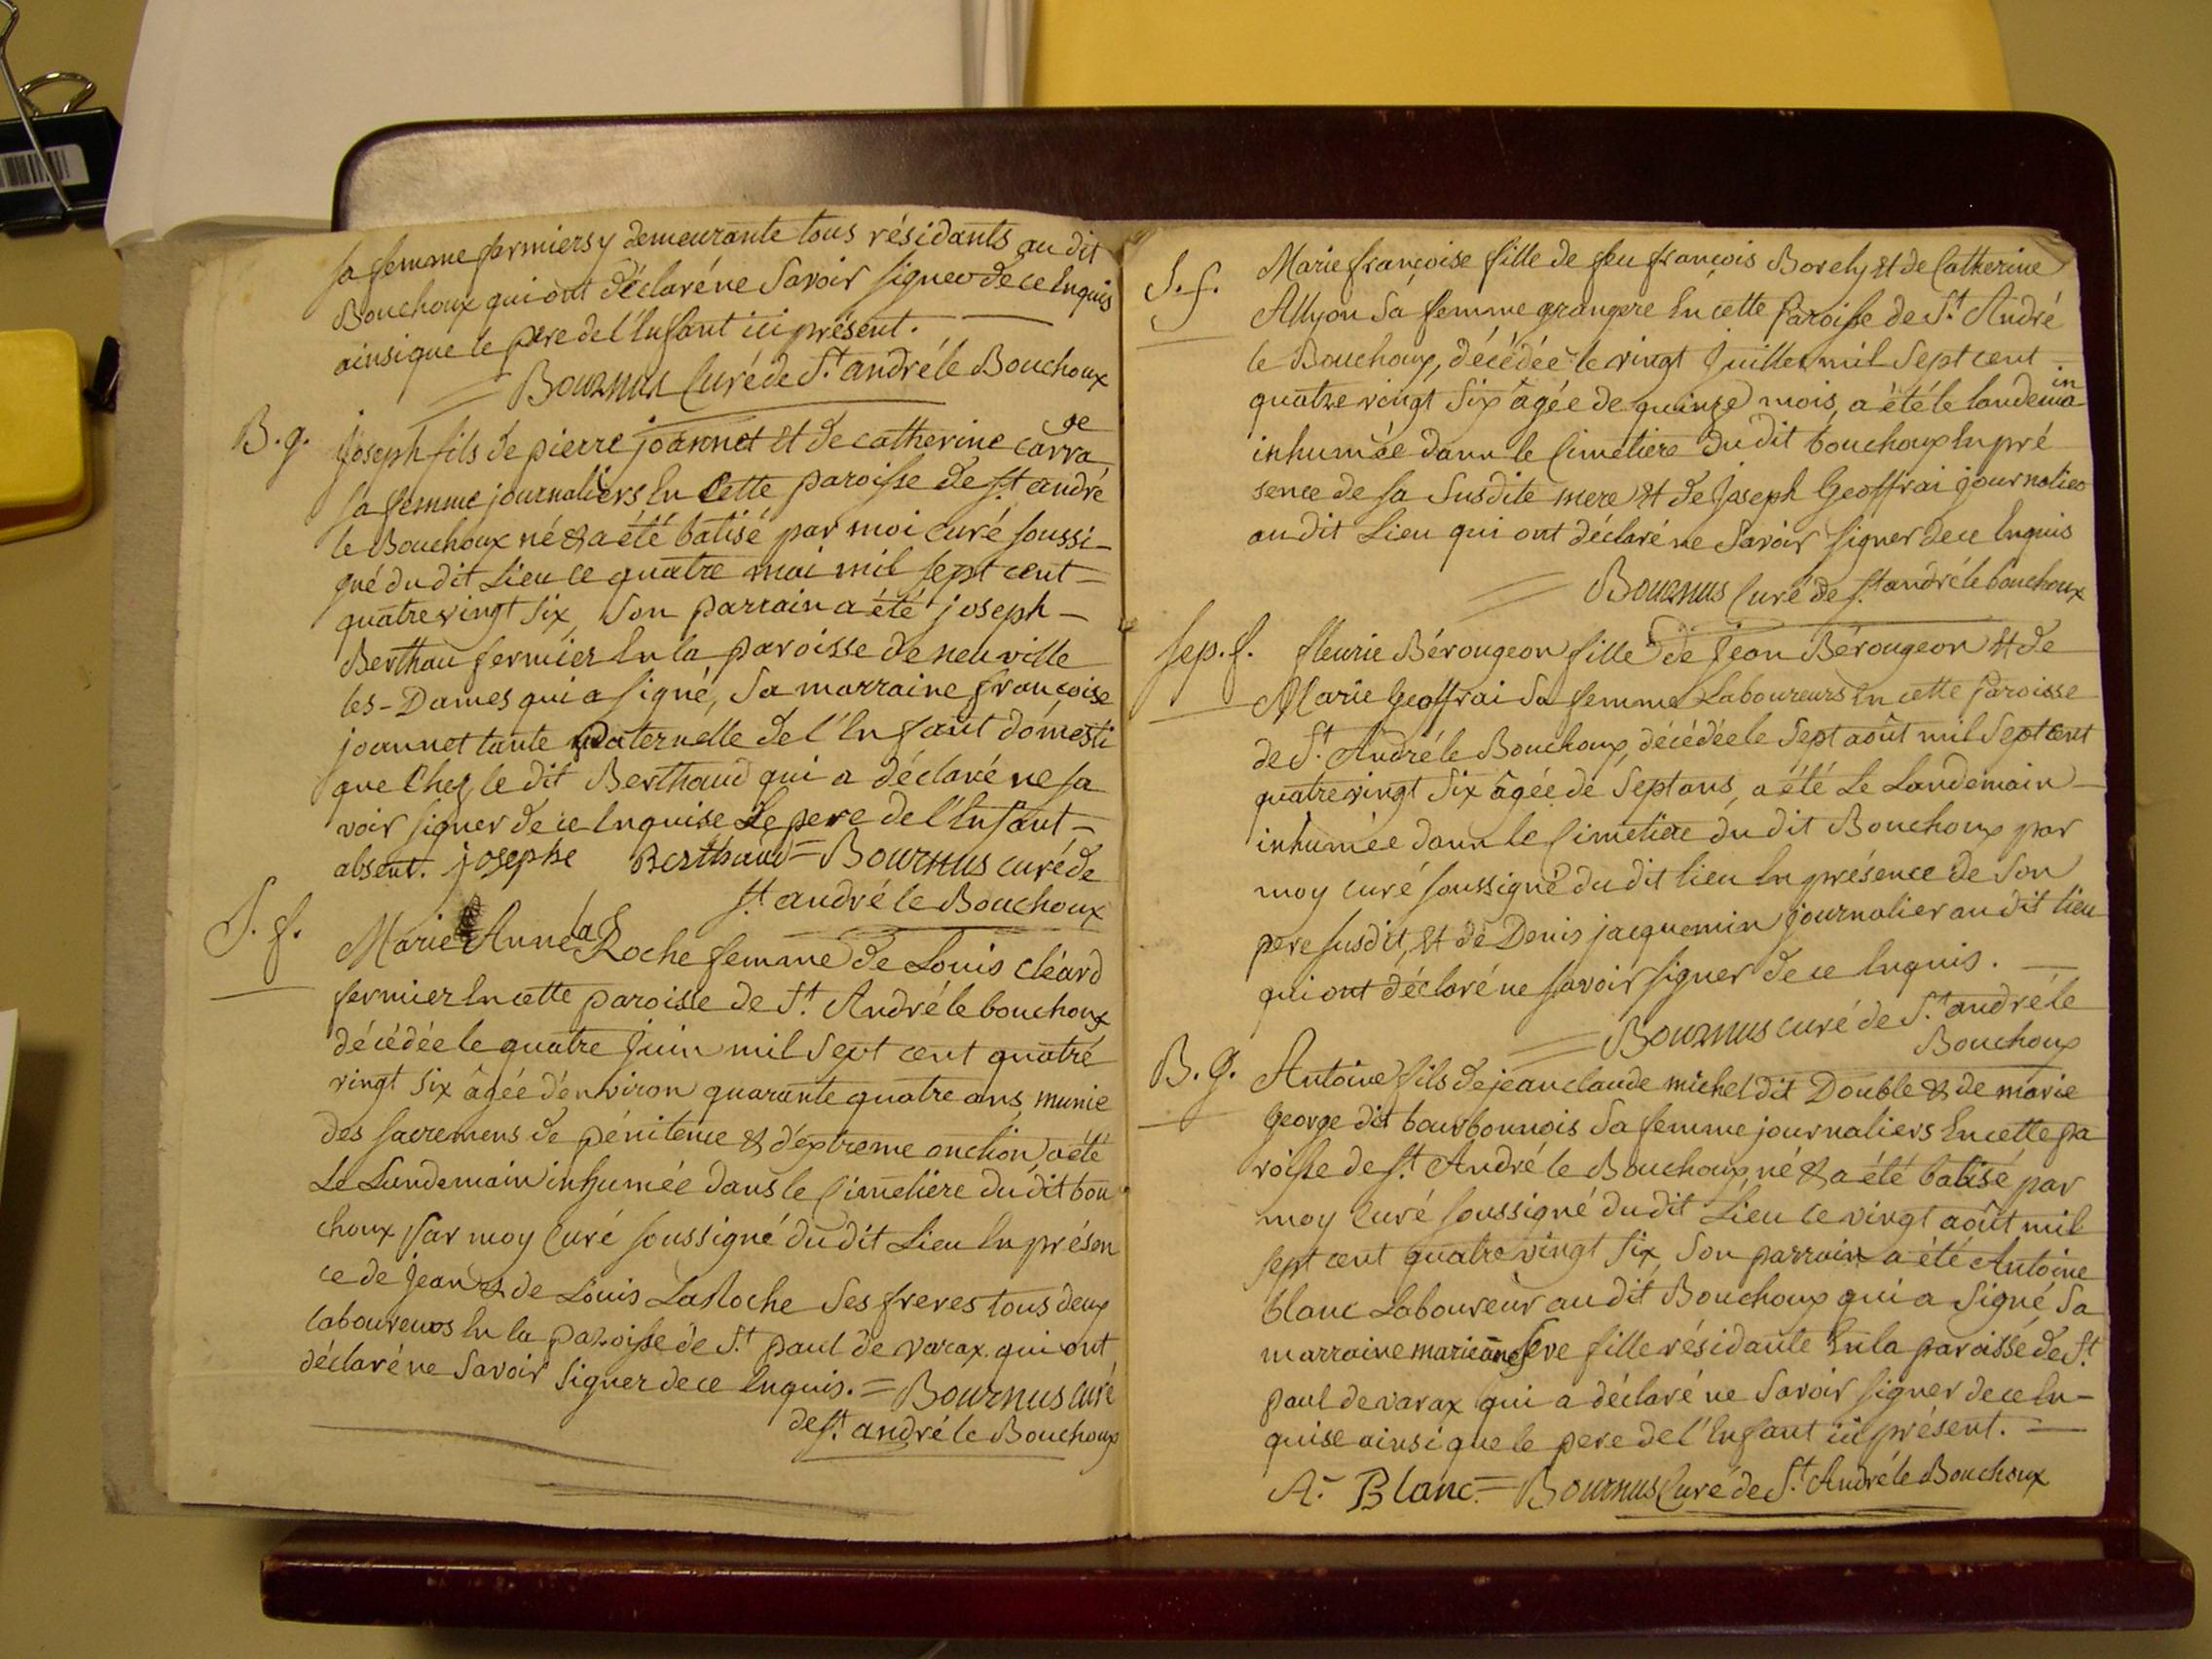 sa femme fermiers y demeurante tous résidants au dit
Bouchoux qui ont déclaré ne Savoir signer de ce Enquis
ainsi que le pere de l'Enfant ici présent.
Bournus Curé de St. andré le Bouchoux
B. g. joseph fils de pierre joannet Et de catherine carra
ge
sa femme journaliers En Cette paroisse de st. andré
le Bouchoux né & a été batisé par moi curé soussi-
gné du dit Lieu le quatre mai mil sept cent
quatre vingt six, Son parrain a été joseph -
Berthau fermier En la paroisse de neuville
les-Dames qui a signé, Sa marraine françoise
joannet tante paternelle de l'Enfant domesti
que Chez le dit Berthaud qui a déclaré ne sa
voir signer de ce Enquise Le pere de l'Enfant -
absent. josephe Berthaud = Bournus curé de
st. andré le Bouchoux
S. f. Marie Anne la Roche femme de Louis Cléard
fermier En cette paroisse de St. André le bouchoux
décédée le quatre Juin mil Sept cent quatre
vingt Six âgée d'environ quarante quatre ans, munie
des sacremens de pénitence & d'extreme onction a été
Le Landemain inhumée dans le Cimetiere du dit bou
choux Par moy Curé soussigné du dit Lieu En présen
ce de Jean & de Louis LaRoche Ses freres tous deux
laboureurs En la paroisse de St. paul de varax qui ont
déclaré ne Savoir Signer de ce Enquis. = Bournus curé
de st. andré le Bouchoux
S. f. Marie françoise fille de feu françois Borely Et de Catherine
Allyon Sa femme grangere En cette Paroisse de St. André
le Bouchoux, décédée le vingt Juillet mil Sept cent
quatre vingt Six âgée de quinze mois, a été le landema
in
inhumée dans le Cimetiere du dit bouchoux En pré
sence de sa Susdite mere Et de Joseph Geoffrai journalier
au dit Lieu qui ont déclaré ne Savoir signer de ce Enquis
Bournus Curé de st. andré le bouchoux
sep. f. fleurie Bérougeon fille de Jean Bérougeon Et de
Marie Geoffrai Sa femme Laboureurs En cette Paroisse
de St. André le Bouchoux, décédée le Sept août mil Sept cent
quatre vingt Six âgée de Sept ans, a été Le Landemain -
inhumée dans le Cimetiere du dit Bouchoux par
moy curé soussigné du dit lieu En présence de Son
pere susdit, Et de Denis jacquemin journalier au dit lieu
qui ont déclaré ne savoir signer de ce Enquis.
Bournus curé de St. andré le
Bouchoux
B. g. Antoine fils de jean claude michel dit Double & de marie
George dit bourbonnois Sa femme journaliers En cette pa
roisse de st. André le Bouchoux, né & a été batisé par
moy Curé soussigné du dit Lieu le vingt août mil
sept cent quatre vingt six, Son parrain a été Antoine
blanc Laboureur au dit Bouchoux qui a Signé, Sa
marraine marieanne seve fille résidante En la paroisse de St.
paul de varax qui a déclaré ne Savoir signer de ce En-
quise ainsi que le pere de l'Enfant ici présent.
A. Blanc = Bournus Curé de St. André le Bouchoux